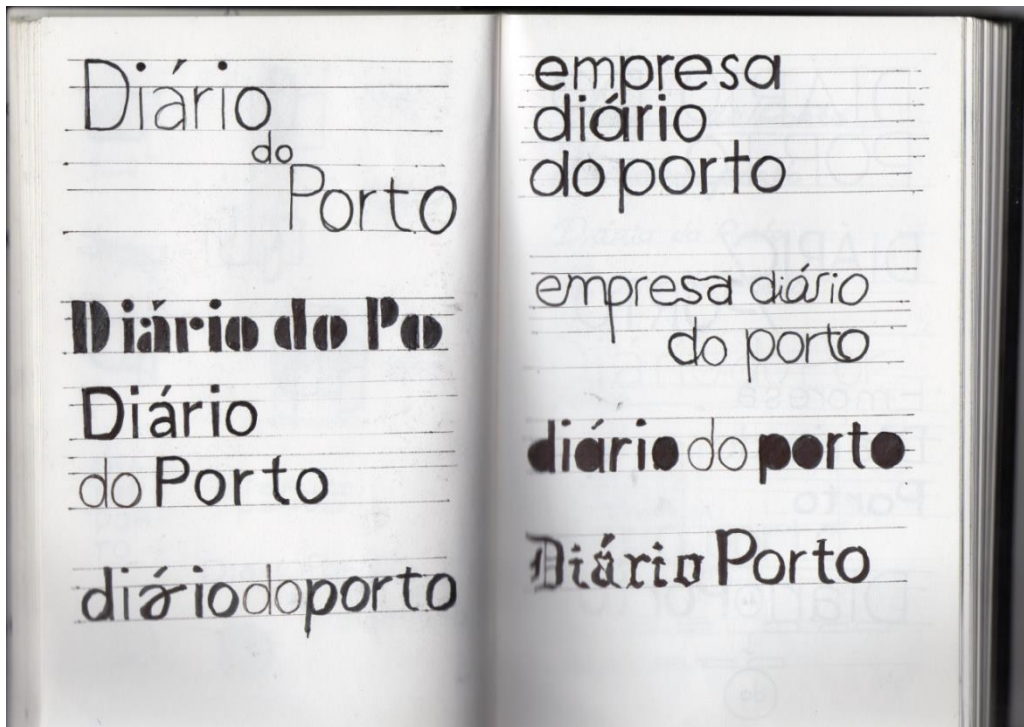 Diário
do
Porto
Diário do Po
Diário
do Porto
diáriodoporto
empresa
diário
do porto
empresa diário
do porto
diário do porto
Diário Porto